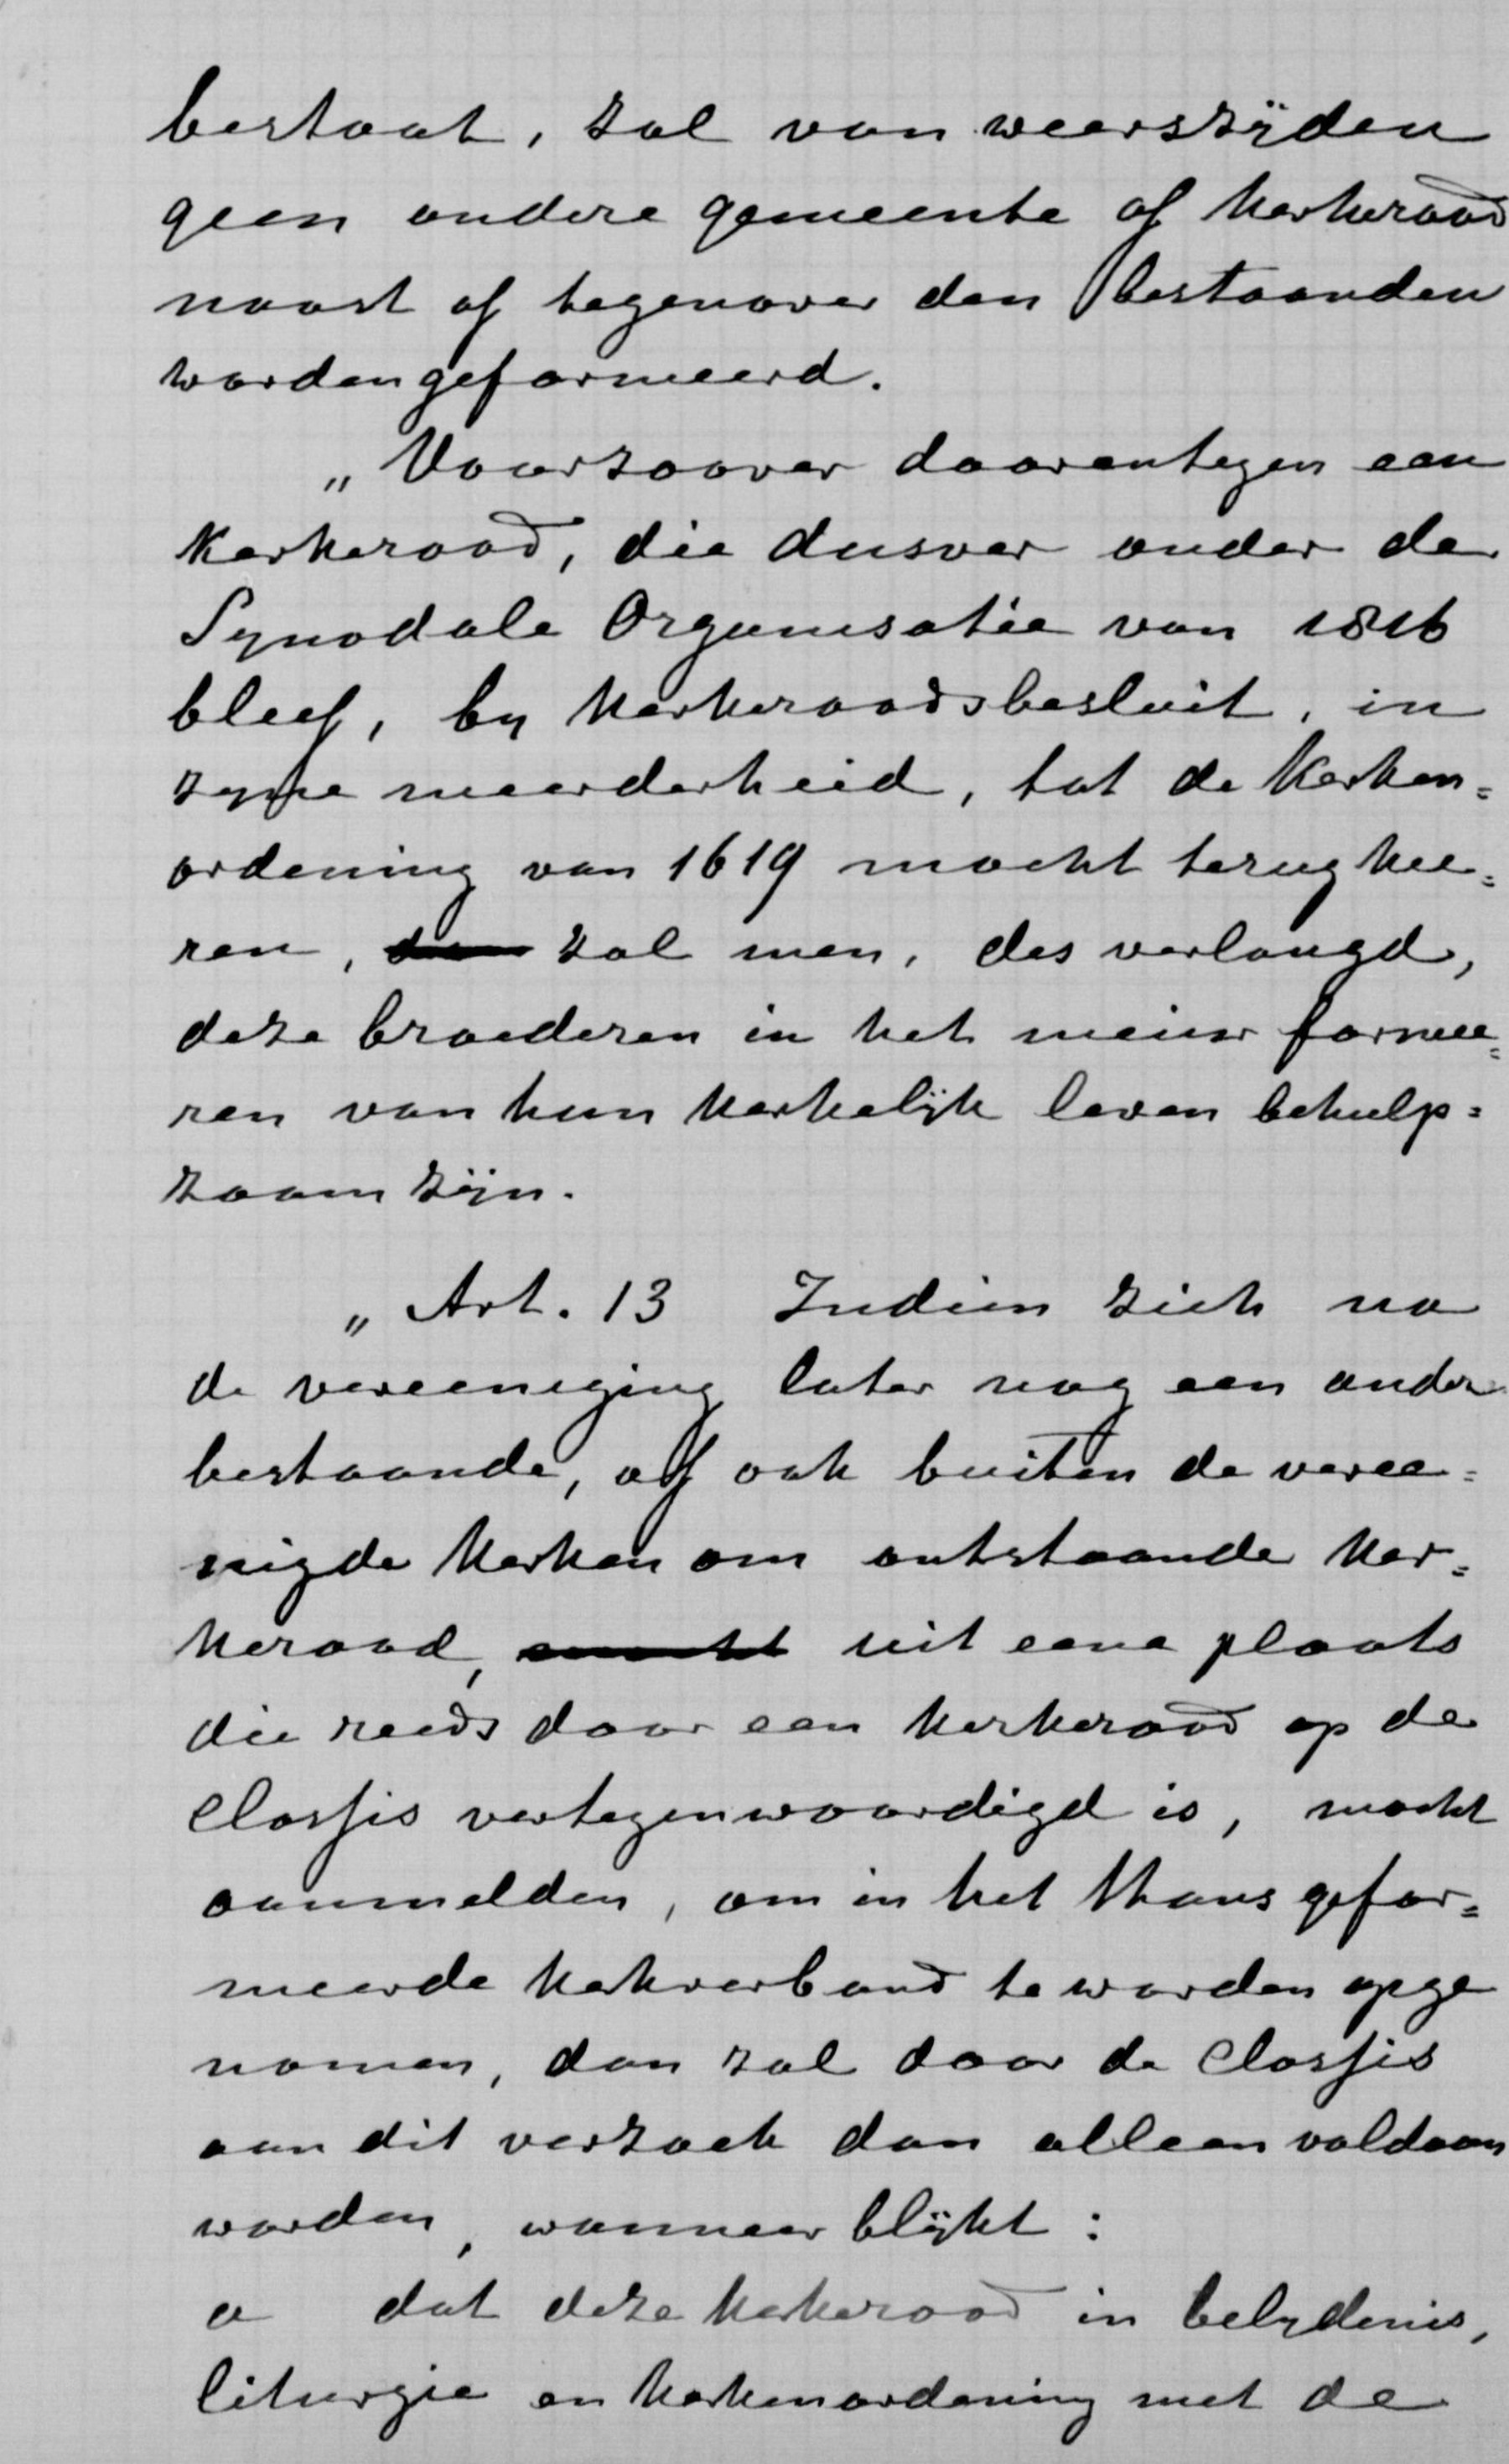 bestaat, zal van weerszijden
geen andere gemeente of kerkeraad
naast of tegenover den bestaanden
worden geformeerd.
„Voorzoover daarentegen een
kerkeraad, die dusver onder de
Synodale Organisatie van 1816
bleef, by kerkeraadsbesluit, in
zyne meerderheid, tot de Kerken=
ordening van 1619 mocht terugkee=
ren, zal men, des verlangd,
deze broederen in het nieuw formee=
ren van hun kerkelijk leven behulp=
zaam zijn.
„Art. 13 Indien zich na
de vereeniging later nog een ander
bestaande, of ook buiten de veree=
nigde kerken om ontstaande ker=
keraad, uit eene plaats
die reeds door een kerkeraad op de
Classis vertegenwoordigd is, mocht
aanmelden, om in het thans gefor=
meerde kerkverband te worden opge
nomen, dan zal door de Classis
aan dit verzoek dan alleen voldaan
worden, wanneer blijkt:
a dat deze kerkeraad in belydenis,
liturgie en kerkenordening met de